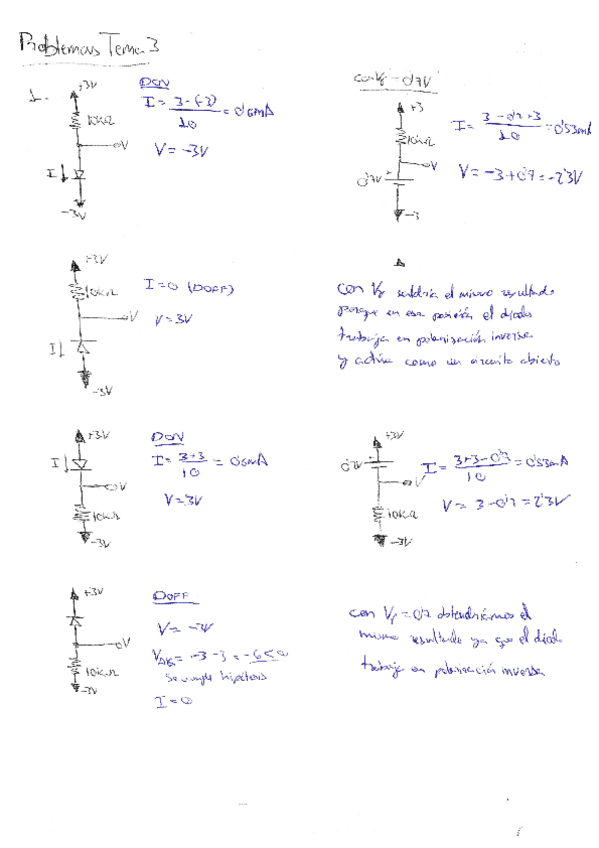 Problemas Tema 3
1.
+3V
10kΩ
V
I
-3V
DON
I = 3-(-3) / 10 = 0'6mA
V = -3V
con Vf = 0'7V
+3
10kΩ
V
0'7V
-3
I = 3 - 0'7 + 3 / 10 = 0'53mA
V = -3 + 0'7 = -2'3V
+3V
10kΩ
V
I
-3V
I = 0 (DOFF)
V = 3V
con Vf saldría el mismo resultado
porque en esa posición el diodo
trabaja en polarización inversa
y actúa como un circuito abierto
+3V
I
V
10kΩ
-3V
DON
I = 3+3 / 10 = 0'6mA
V = 3V
+3V
0'7V
V
10kΩ
-3V
I = 3+3-0'7 / 10 = 0'53mA
V = 3 - 0'7 = 2'3V
+3V
V
10kΩ
-3V
DOFF
V = -3V
= -3-3 = -6 < 0
Se cumple hipótesis
I = 0
con Vf = 0'7 obtendríamos el
mismo resultado ya que el diodo
trabaja en polarización inversa